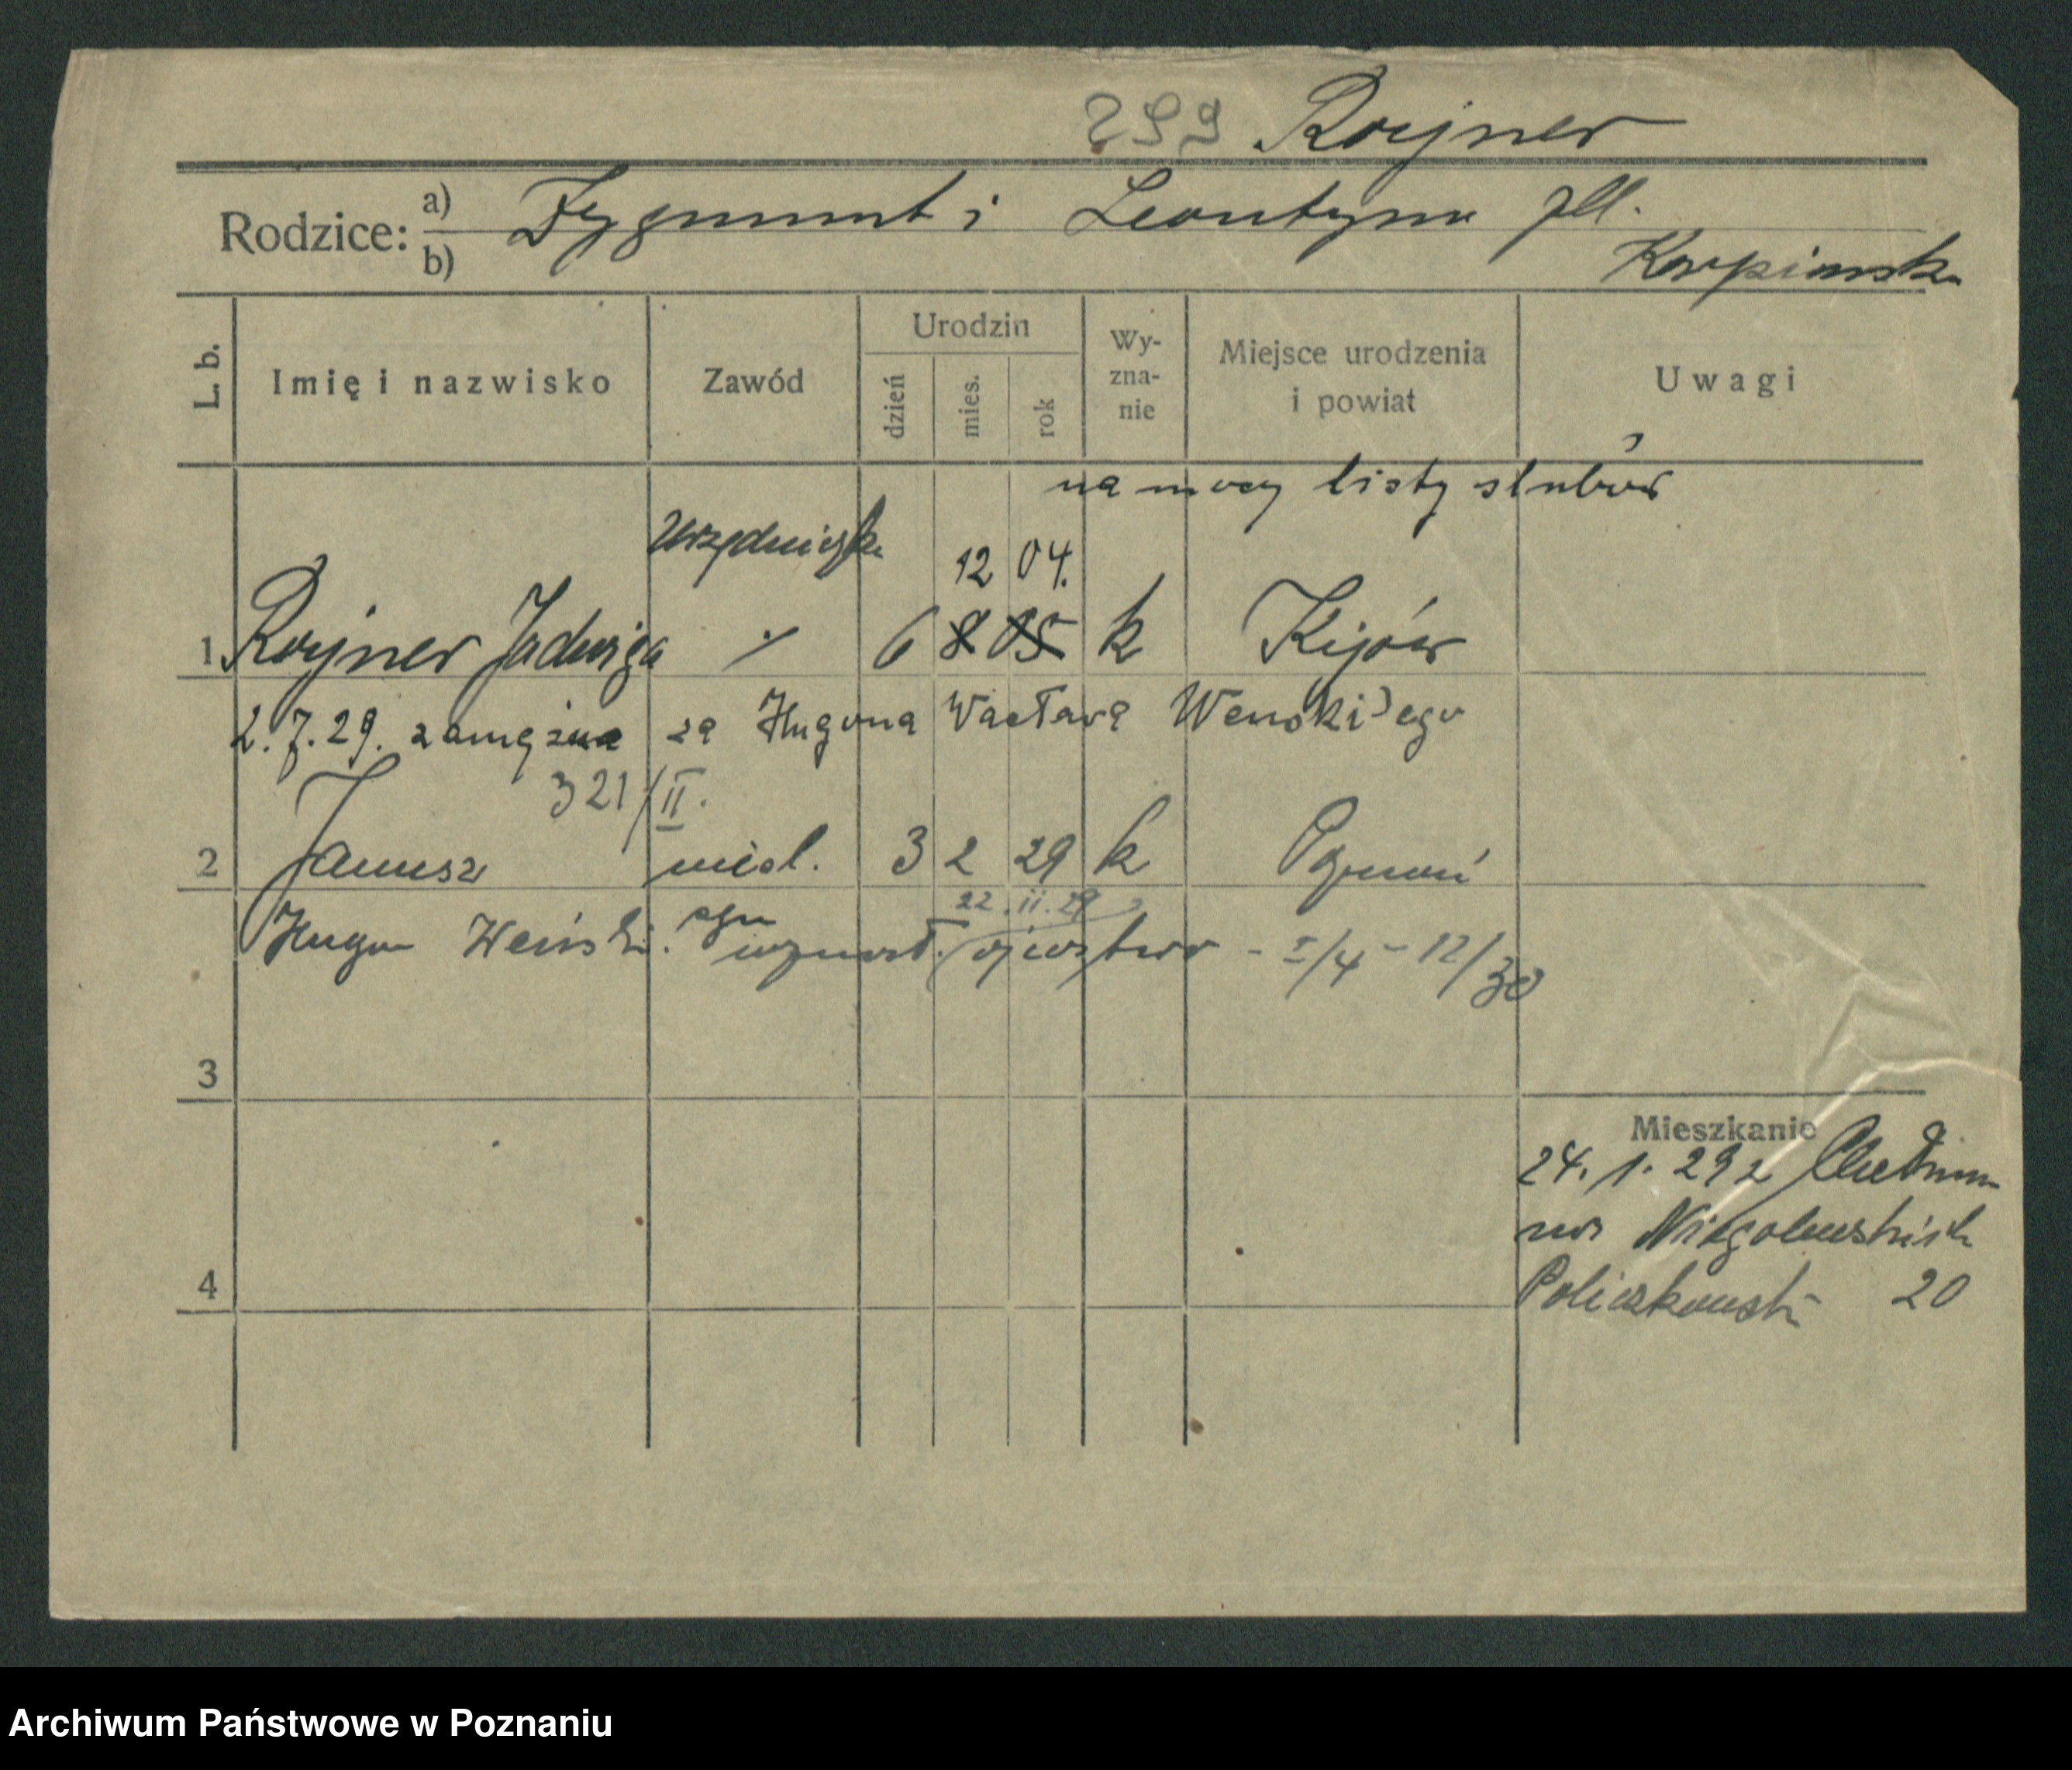 299 Rojner
Rodzice: a) Zygmunt i Leontyna
b) Karpińska
L. b.
Imię i nazwisko
Zawód
Urodzin
dzień
mies.
rok
Wy-
zna-
nie
Miejsce urodzenia
i powiat
Uwagi
na mocy listy ślubów
Urzędniczka
12 04.
1 Rojner Jadwiga ⁒ 6 8 05 k Kijów
2.7.29. zamężna za Hugona Wacława Wenskiego
321/II.
2 Janusz niel. 3 2 29 k Poznań
22.II.29
Hugon Weński. uznał ojcostwo - I/4 - 12/30
3
Mieszkanie
24. 1. 29 z Chełmna
Niegolewskich
4
20
Archiwum Państwowe w Poznaniu